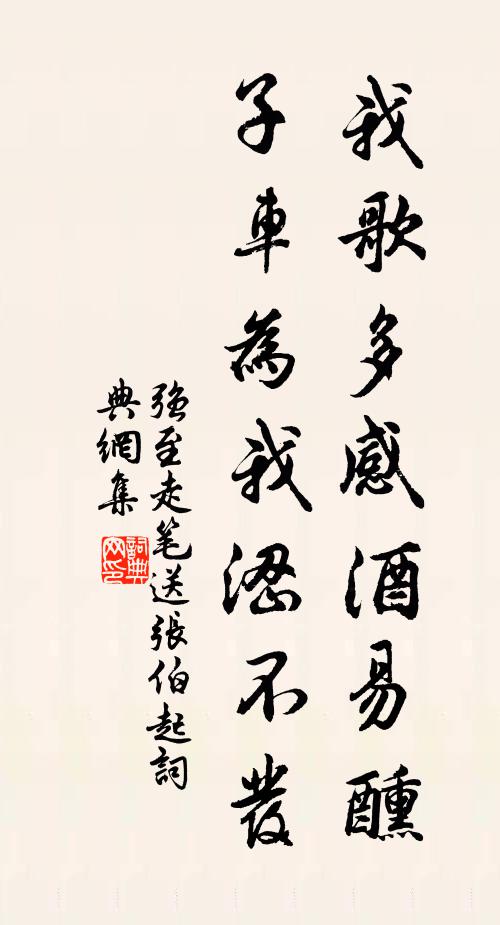 我歌多感酒易醺
子車為我不發
強至走笔送張伯起詞
典網集
詞典
网印